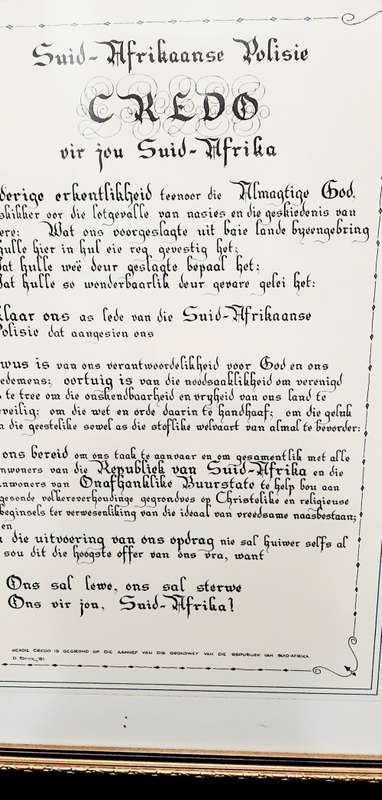 Suid-Afrikaanse Polisie
CREDO
vir jou Suid-Afrika
derige erkentlikheid teenoor die Almagtige God,
skikker oor die lotgevalle van nasies en die geskiedenis van
ere: Wat ons voorgeslagte uit baie lande byeengebring
hulle hier in hul eie reg gevestig het;
at hulle weë deur geslagte bepaal het;
at hulle so wonderbaarlik deur gevare gelei het:
laar ons as lede van die Suid-Afrikaanse
Polisie dat aangesien ons
wus is van ons verantwoordelikheid voor God en ons
edemens; oortuig is van die noodsaaklikheid om verenigd
te tree om die onskendbaarheid en vryheid van ons land te
veilig; om die wet en orde daarin te handhaaf; om die geluk
n die geestelike sowel as die stoflike welvaart van almal te bevorder;
ons bereid om ons taak te aanvaar en om gesamentlik met alle
nwoners van die Republiek van Suid-Afrika en die
nwoners van Onafhanklike Buurstate te help bou aan
gesonde volkereverhoudinge gegrond op Christelike en religieuse
beginsels ter verwesenliking van die ideaal van vreedsame naasbestaan;
en
n die uitvoering van ons opdrag nie sal huiwer selfs al
sou dit die hoogste offer van ons vra, want
Ons sal lewe, ons sal sterwe
Ons vir jou, Suid-Afrika!
HIERDIE CREDO IS GEGROND OP DIE AANHEF VAN DIE GRONDWET VAN DIE REPUBLIEK VAN SUID-AFRIKA